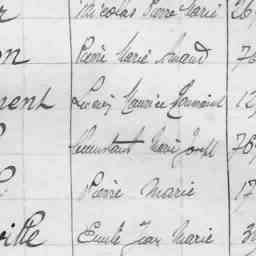 Nicolas Pierre Marie 26
on Pierre Marie Amand 7
ment Maurice 12
Marie Joseph 76
Pierre Marie 17
ville Emile Jean Marie 3